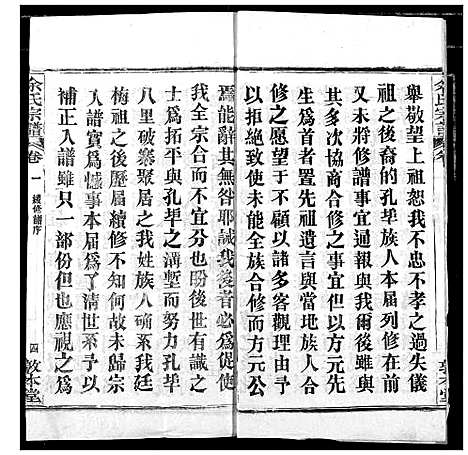 舉敬望上祖恕我不忠不孝之過失儀
祖之後裔的孔垏族人本屆列修在前
又未將修譜事宜通報與我爾後雖與
其多次協商合修之事宜但以方元先
生爲首者置先祖遺言與當地族人合
修之愿望于不顧以諸多客觀理由予
以拒絕致使未能全族合而修方元公
焉能辭其無咎耶誠我後者必爲促使
我全宗合而一分也盼後世有識之
士爲拓平與孔垏之溝塹而努力孔垏
八里破寨聚居之我姓族人确系我廷
梅祖之後歷屆續修不知何故未歸宗
入譜實爲憾事本屆爲了清世系予以
補正入譜雖只一部份但也應視之爲
余氏宗譜
卷一
續修譜序
四
敦本堂